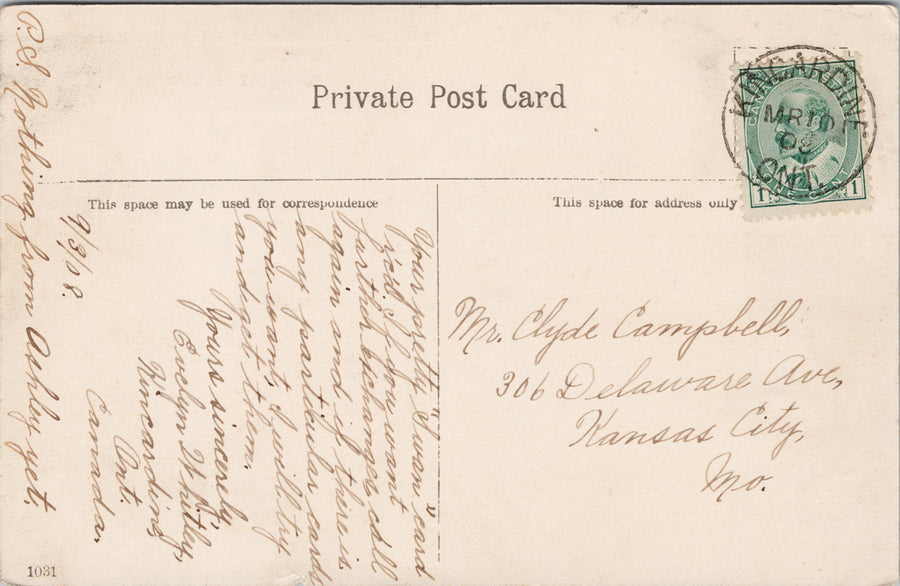 Private Post Card
This space may be used for correspondence
This space for address only
KINCARDINE
MR 10
08
ONT.
1 ONE CENT 1
Mr. Clyde Campbell,
306 Delaware Ave,
Kansas City,
Mo.
9/3/08.
Your pretty "Swan" card
rec'd. If you want
further exchange call
again and if there is
any particular card
you want, I will try
and get them.
Yours sincerely,
Evelyn Whitley,
Kincardine,
Ont.
Canada.
P.S. Nothing from Ashley yet.
1031